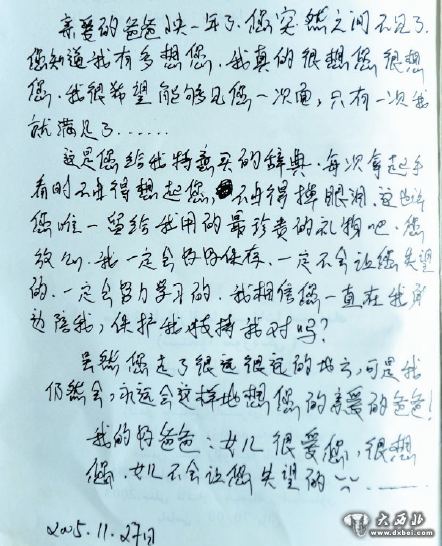 亲爱的爸爸快一年了.您突然之间不见了.
您知道我有多想您.我真的很想您很想
您.我很希望能够见您一次面,只有一次我
就满足了......
这是您给我特意买的辞典.每次拿起
看时不由得想起您,不由得掉眼泪.这
您唯一留给我用的最珍贵的礼物吧.您
放心.我一定会好好保存.一定不会让您失望
的.一定会努力学习的.我相信您一直在我身
边陪我,保护我支持我对吗?
虽然您走了很远很远的地方,可是我
仍然会,永远会这样地想您的亲爱的爸爸!
我的好爸爸:女儿很爱您,很想
您.女儿不会让您失望的......
2005.11.27日
大西北
www.dxbei.com